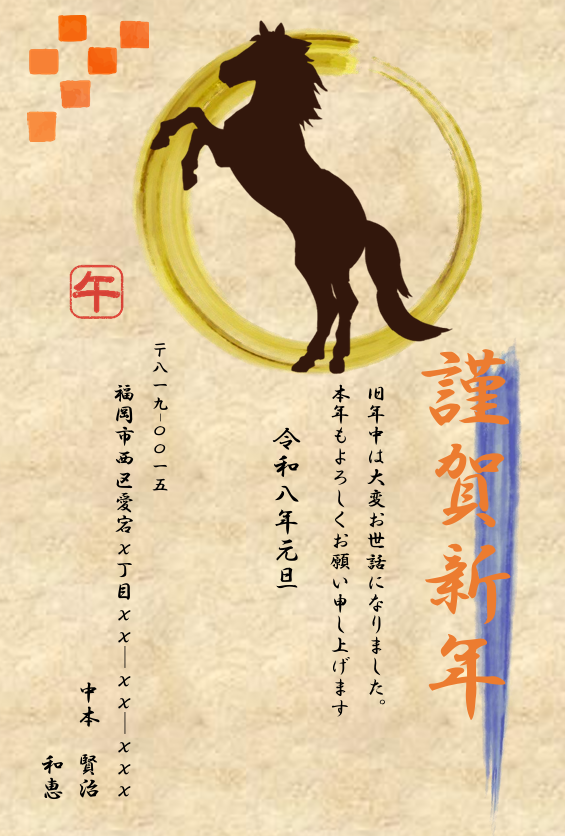 謹賀新年
旧年中は大変お世話になりました。
本年もよろしくお願い申し上げます
令和八年元旦
〒八一九-〇〇一五
福岡市西区愛宕x丁目xx―xx―xxx
中本 賢治
和恵
午